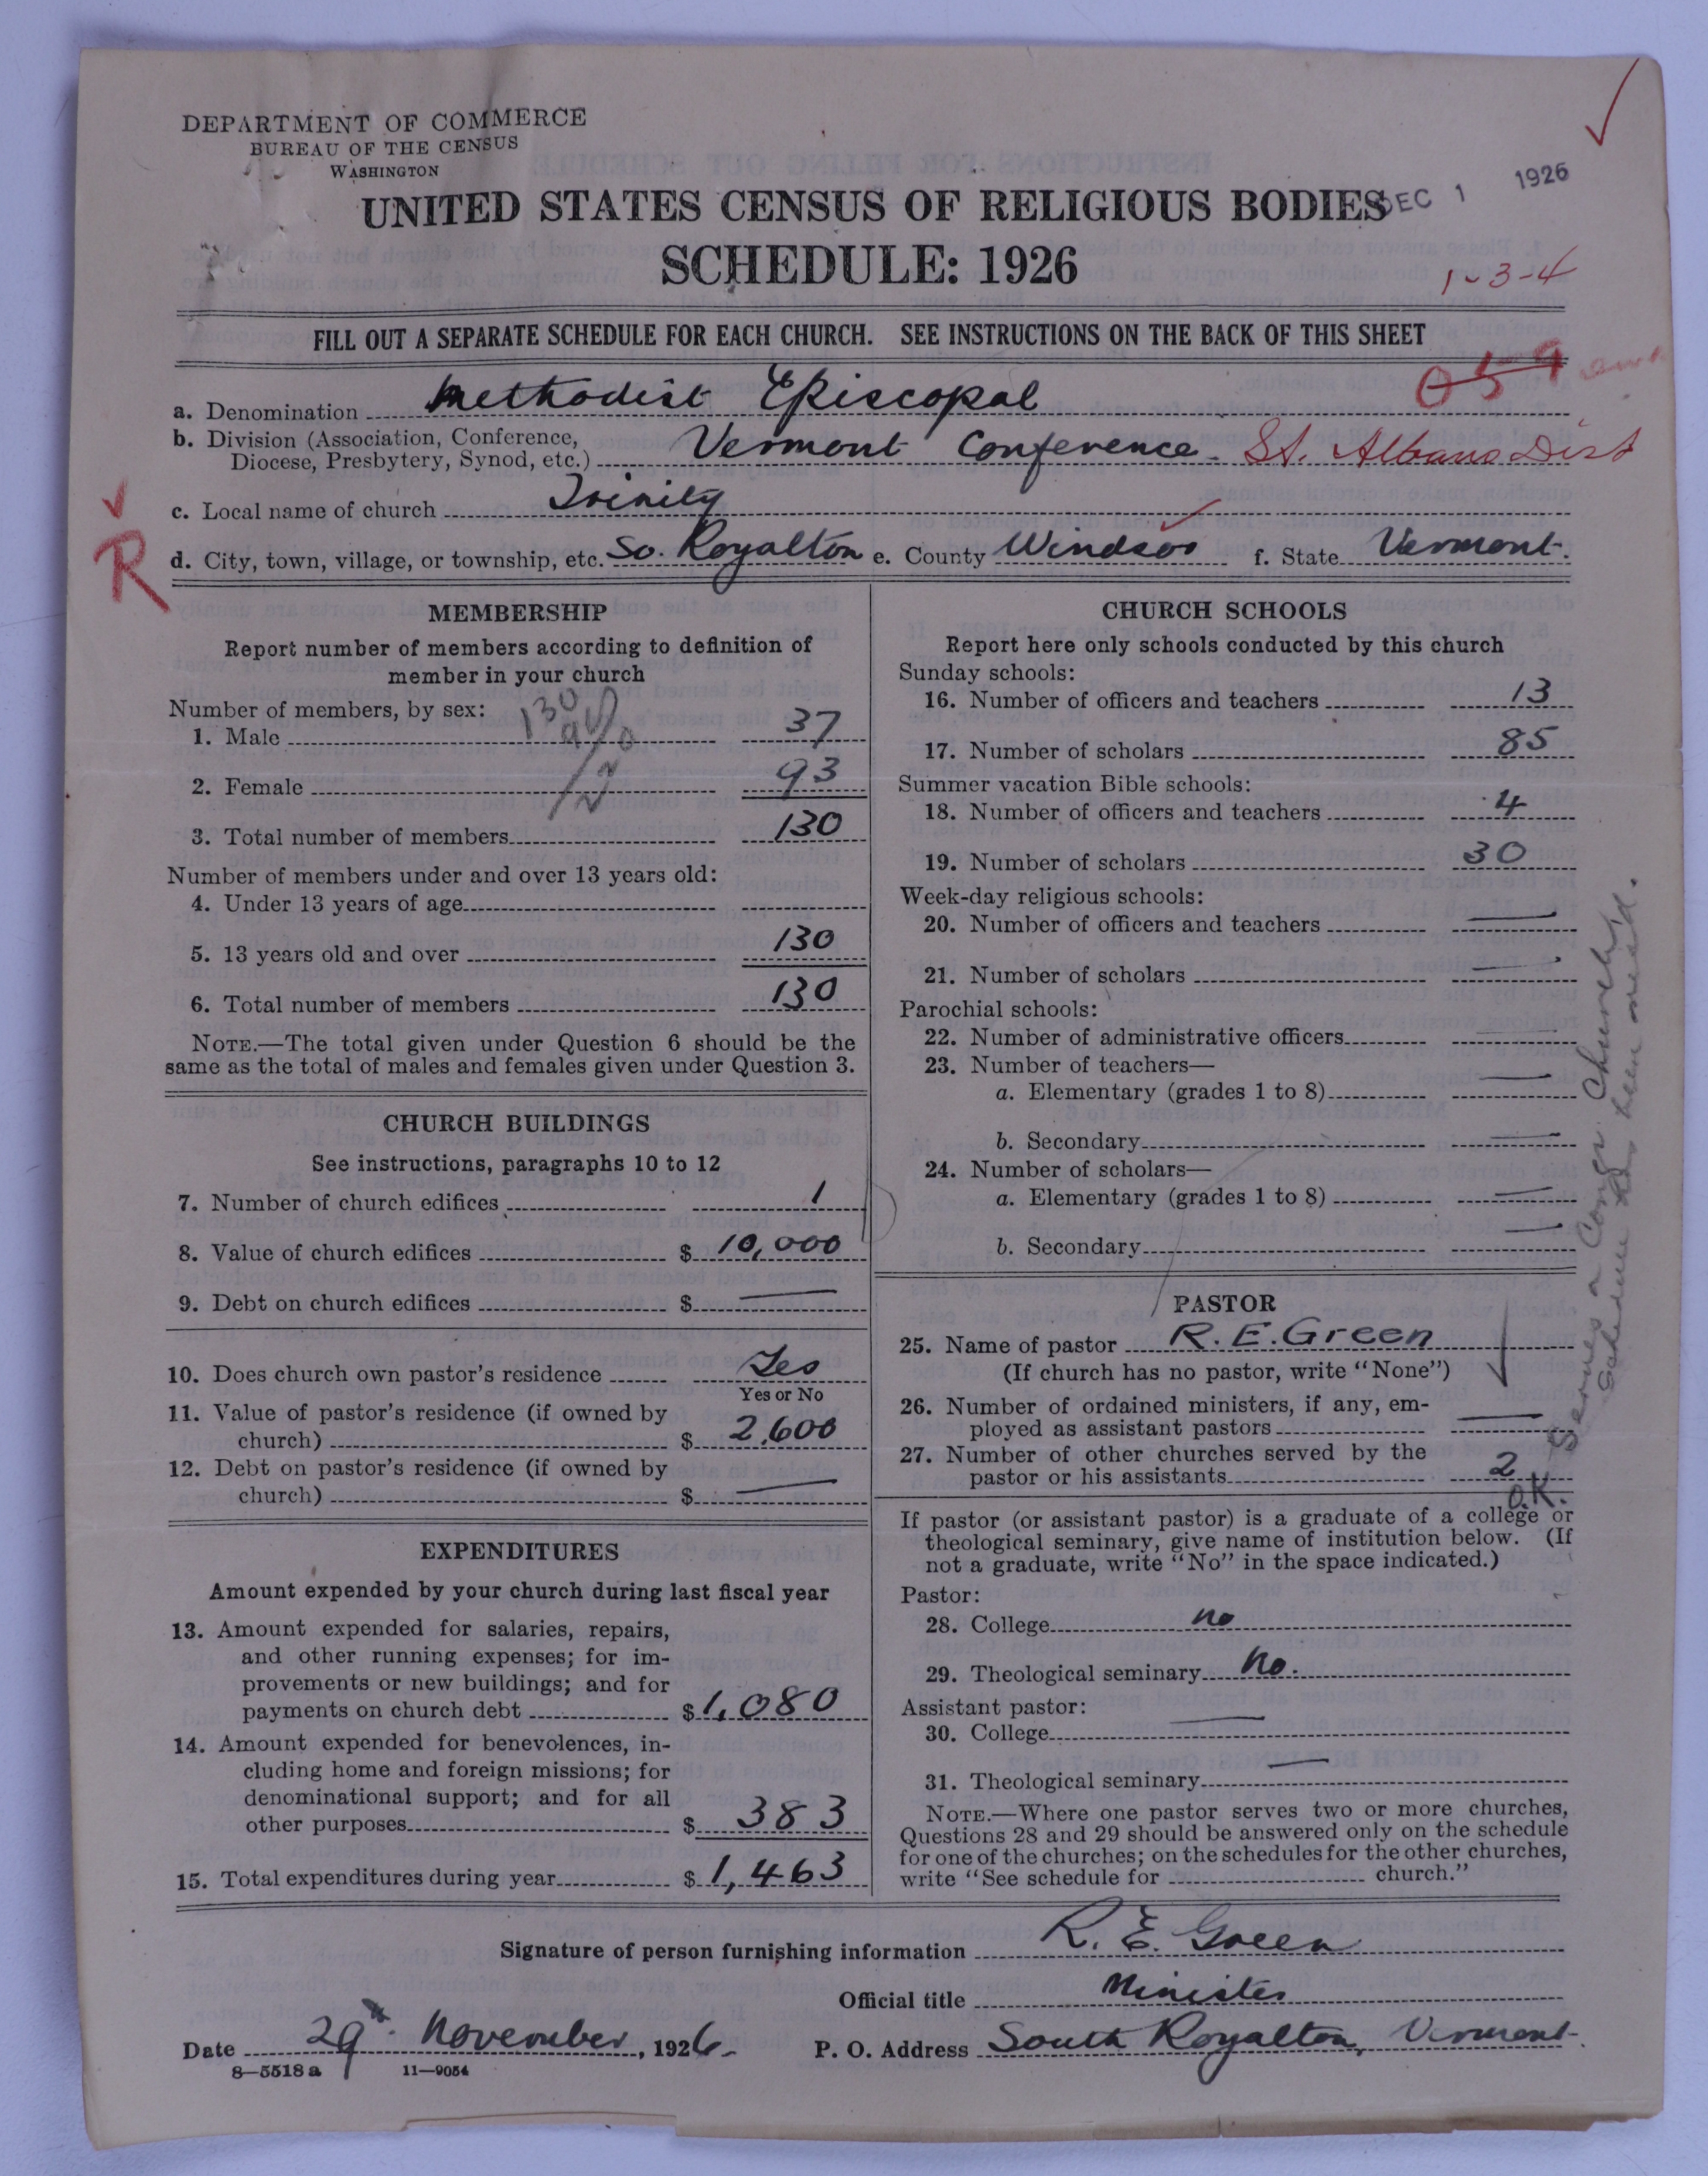 DEPARTMENT OF COMMERCE
BUREAU OF THE CENSUS
WASHINGTON
UNITED STATES CENSUS OF RELIGIOUS BODIES
DEC 1 1926
SCHEDULE: 1926
1-3-4
FILL OUT A SEPARATE SCHEDULE FOR EACH CHURCH. SEE INSTRUCTIONS ON THE BACK OF THIS SHEET
059
a. Denomination Methodist Episcopal
b. Division (Association, Conference, Diocese, Presbytery, Synod, etc.) Vermont Conference - St. Albans Dist
c. Local name of church Trinity
R
d. City, town, village, or township, etc. So. Royalton e. County Windsor f. State Vermont.
MEMBERSHIP
Report number of members according to definition of
member in your church
Number of members, by sex:
130
1. Male 37
2. Female 93
3. Total number of members 130
Number of members under and over 13 years old:
4. Under 13 years of age
5. 13 years old and over 130
6. Total number of members 130
NOTE.—The total given under Question 6 should be the
same as the total of males and females given under Question 3.
CHURCH BUILDINGS
See instructions, paragraphs 10 to 12
7. Number of church edifices 1
8. Value of church edifices $ 10,000
9. Debt on church edifices $ —
10. Does church own pastor's residence Yes
Yes or No
11. Value of pastor's residence (if owned by
church) $ 2,600
12. Debt on pastor's residence (if owned by
church) $ —
EXPENDITURES
Amount expended by your church during last fiscal year
13. Amount expended for salaries, repairs,
and other running expenses; for im-
provements or new buildings; and for
payments on church debt $ 1,080
14. Amount expended for benevolences, in-
cluding home and foreign missions; for
denominational support; and for all
other purposes $ 383
15. Total expenditures during year $ 1,463
CHURCH SCHOOLS
Report here only schools conducted by this church
Sunday schools:
16. Number of officers and teachers 13
17. Number of scholars 85
Summer vacation Bible schools:
18. Number of officers and teachers 4
19. Number of scholars 30
Week-day religious schools:
20. Number of officers and teachers —
21. Number of scholars —
Parochial schools:
22. Number of administrative officers —
23. Number of teachers—
a. Elementary (grades 1 to 8) —
b. Secondary —
24. Number of scholars—
a. Elementary (grades 1 to 8) —
b. Secondary —
PASTOR
25. Name of pastor R. E. Green
(If church has no pastor, write "None")
26. Number of ordained ministers, if any, em-
ployed as assistant pastors —
27. Number of other churches served by the
pastor or his assistants 2
O.K.
If pastor (or assistant pastor) is a graduate of a college or
theological seminary, give name of institution below. (If
not a graduate, write "No" in the space indicated.)
Pastor:
28. College no
29. Theological seminary No.
Assistant pastor:
30. College —
31. Theological seminary —
NOTE.—Where one pastor serves two or more churches,
Questions 28 and 29 should be answered only on the schedule
for one of the churches; on the schedules for the other churches,
write "See schedule for church."
Serves a Cong. Church
Schedule has been
Signature of person furnishing information R. E. Green
Official title Minister
Date 29th November, 1926. P. O. Address South Royalton, Vermont.
8—5518 a 11—9054